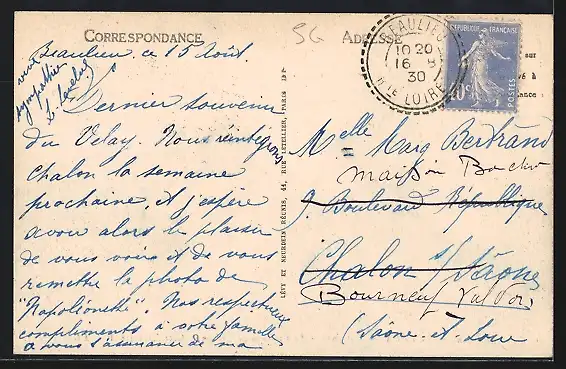 CORRESPONDANCE
SG
ADRESSE
BEAULIEU
10 20
16 - 8
30
HTE LOIRE
REPUBLIQUE FRANÇAISE
40c
POSTES
Beaulieu ce 15 Août
Dernier souvenir
du Velay. Nous réintégrons
Chalon la semaine
prochaine et j'espère
avoir alors le plaisir
de vous voir et de vous
remettre la photo de
"Napoléonette". Nos respectueux
compliments à votre famille
à vous l'assurance de ma
vive
sympathie
LÉVY ET NEURDEIN RÉUNIS, 44, RUE LETELLIER, PARIS
Melle Marg Bertrand
maison
9. Boulevard République
Chalon s/ Saône
Bourneuf Val d'Or
(Saône-et-Loire
sur
à